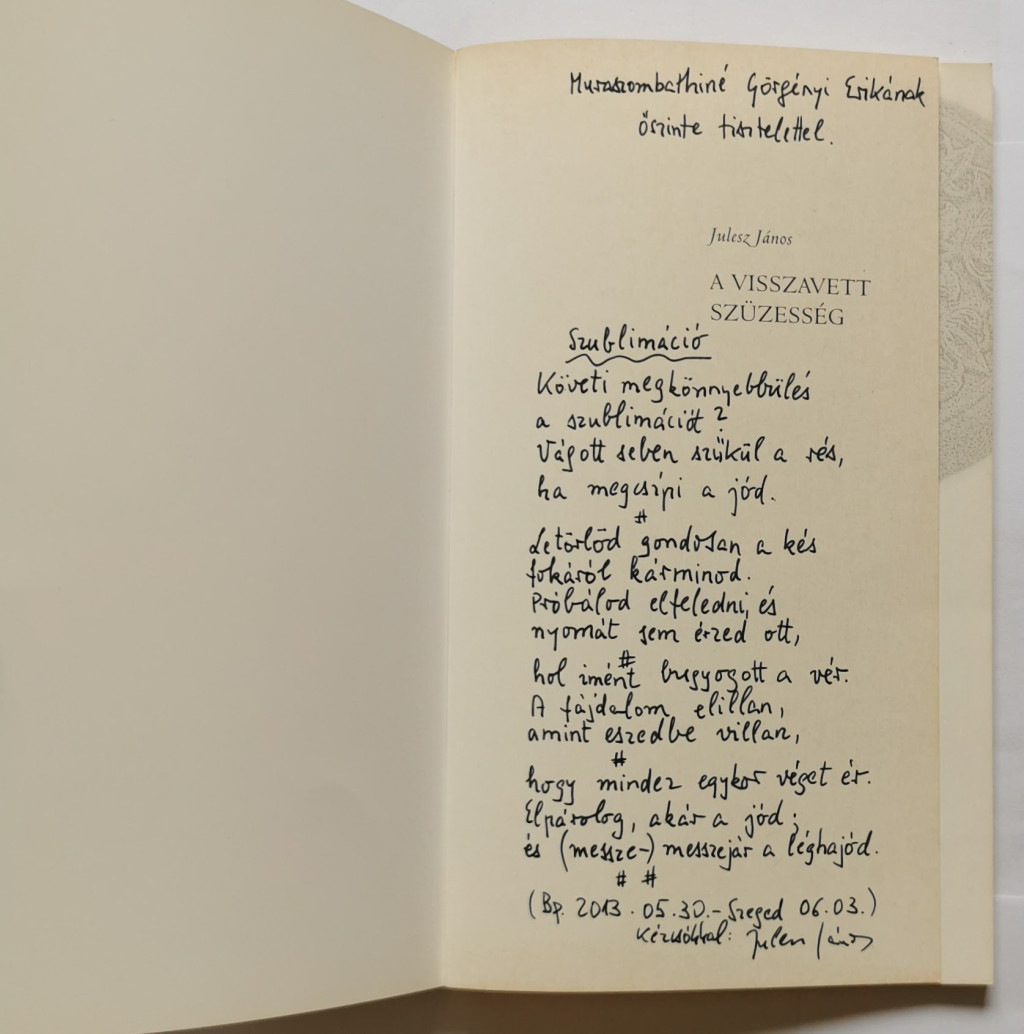 Muraszombathiné Görgényi Erikának
őszinte tisztelettel.
Julesz János
A VISSZAVETT
SZÜZESSÉG
Szublimáció
Követi megkönnyebbülés
a szublimációt?
Vágott seben szűkül a rés,
ha megcsípi a jód.
#
Letörlöd gondosan a kés
fokáról kárminod.
Próbálod elfeledni, és
nyomát sem érzed ott,
#
hol imént bugyogott a vér.
A fájdalom elillan,
amint eszedbe villan,
#
hogy mindez egykor véget ér.
Elpárolog, akár a jód;
és (messze-) messzejár a léghajód.
# #
(Bp. 2013. 05.30.-Szeged 06.03.)
Kézcsókkal: Julesz János